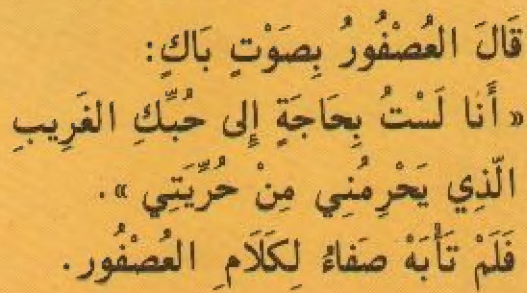 قَالَ العُصْفُورُ بِصَوْتٍ بَاكٍ:
« أَنا لَسْتُ بِحَاجَةٍ إِلى حُبِّكِ الغَرِيبِ
الَّذِي يَحْرِمُنِي مِنْ حُرِّيَتِي ».
فَلَمْ تَأْبَهْ صَفاءُ لِكَلَامِ العُصْفُورِ.